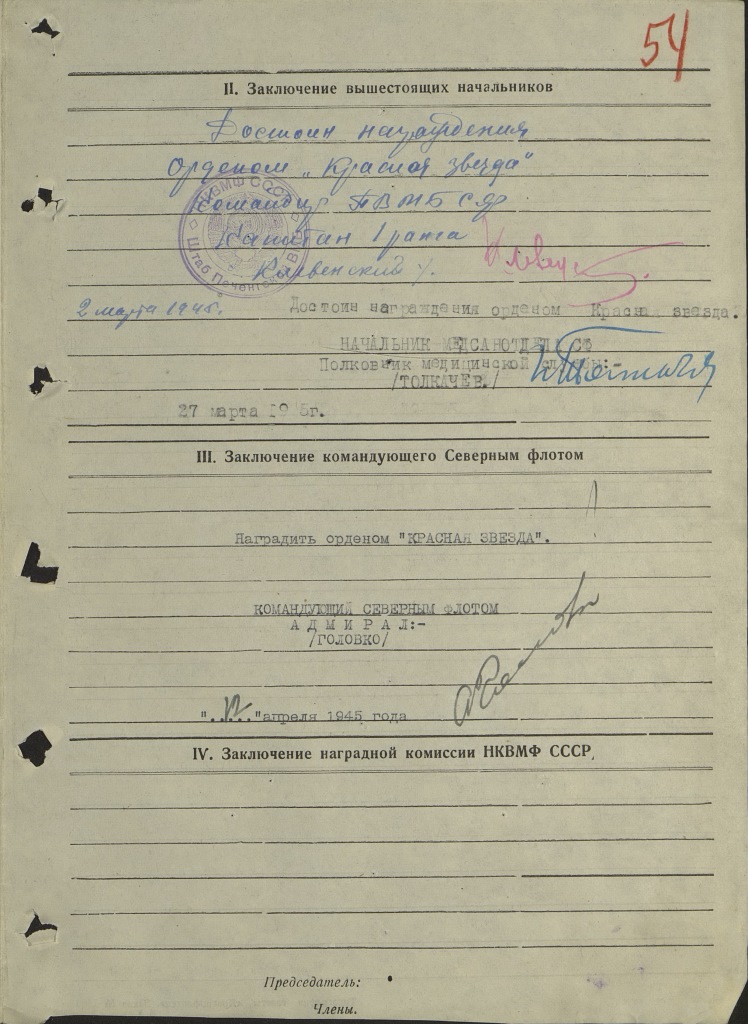 54
II. Заключение вышестоящих начальников
Достоин награждения
Орденом „Красная звезда"
Командир ПВМБ СФ
Капитан 1 ранга
НКВМФ СССР
Штаб Печенгской
2 марта 1945г.
Достоин награждения орденом Красная звезда.
НАЧАЛЬНИК МЕДСАНОТДЕЛА СФ
Полковник медицинской службы:-
/ТОЛКАЧЕВ/
27 марта 1945г.
III. Заключение командующего Северным флотом
Наградить орденом "КРАСНАЯ ЗВЕЗДА".
КОМАНДУЮЩИЙ СЕВЕРНЫМ ФЛОТОМ
А Д М И Р А Л:-
/ГОЛОВКО/
"12" апреля 1945 года
IV. Заключение наградной комиссии НКВМФ СССР
Председатель:
Члены.